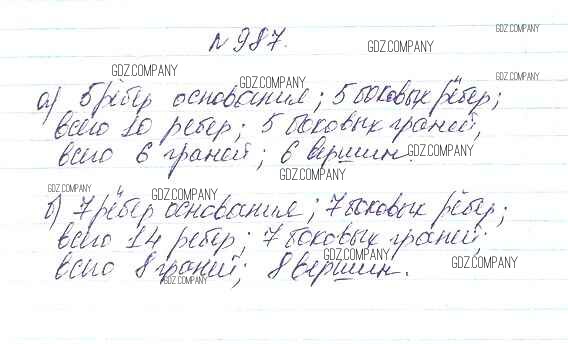 № 987.
GDZ.COMPANY
GDZ.COMPANY
GDZ.COMPANY
GDZ.COMPANY
GDZ.COMPANY
а) 5 рёбер основания; 5 боковых рёбер;
всего 10 ребер; 5 боковых граней,
всего 6 граней; 6 вершин.
GDZ.COMPANY
GDZ.COMPANY
GDZ.COMPANY
GDZ.COMPANY
б) 7 рёбер основания; 7 боковых рёбер;
всего 14 ребер; 7 боковых граней;
GDZ.COMPANY
GDZ.COMPANY
всего 8 граней; 8 вершин.
GDZ.COMPANY